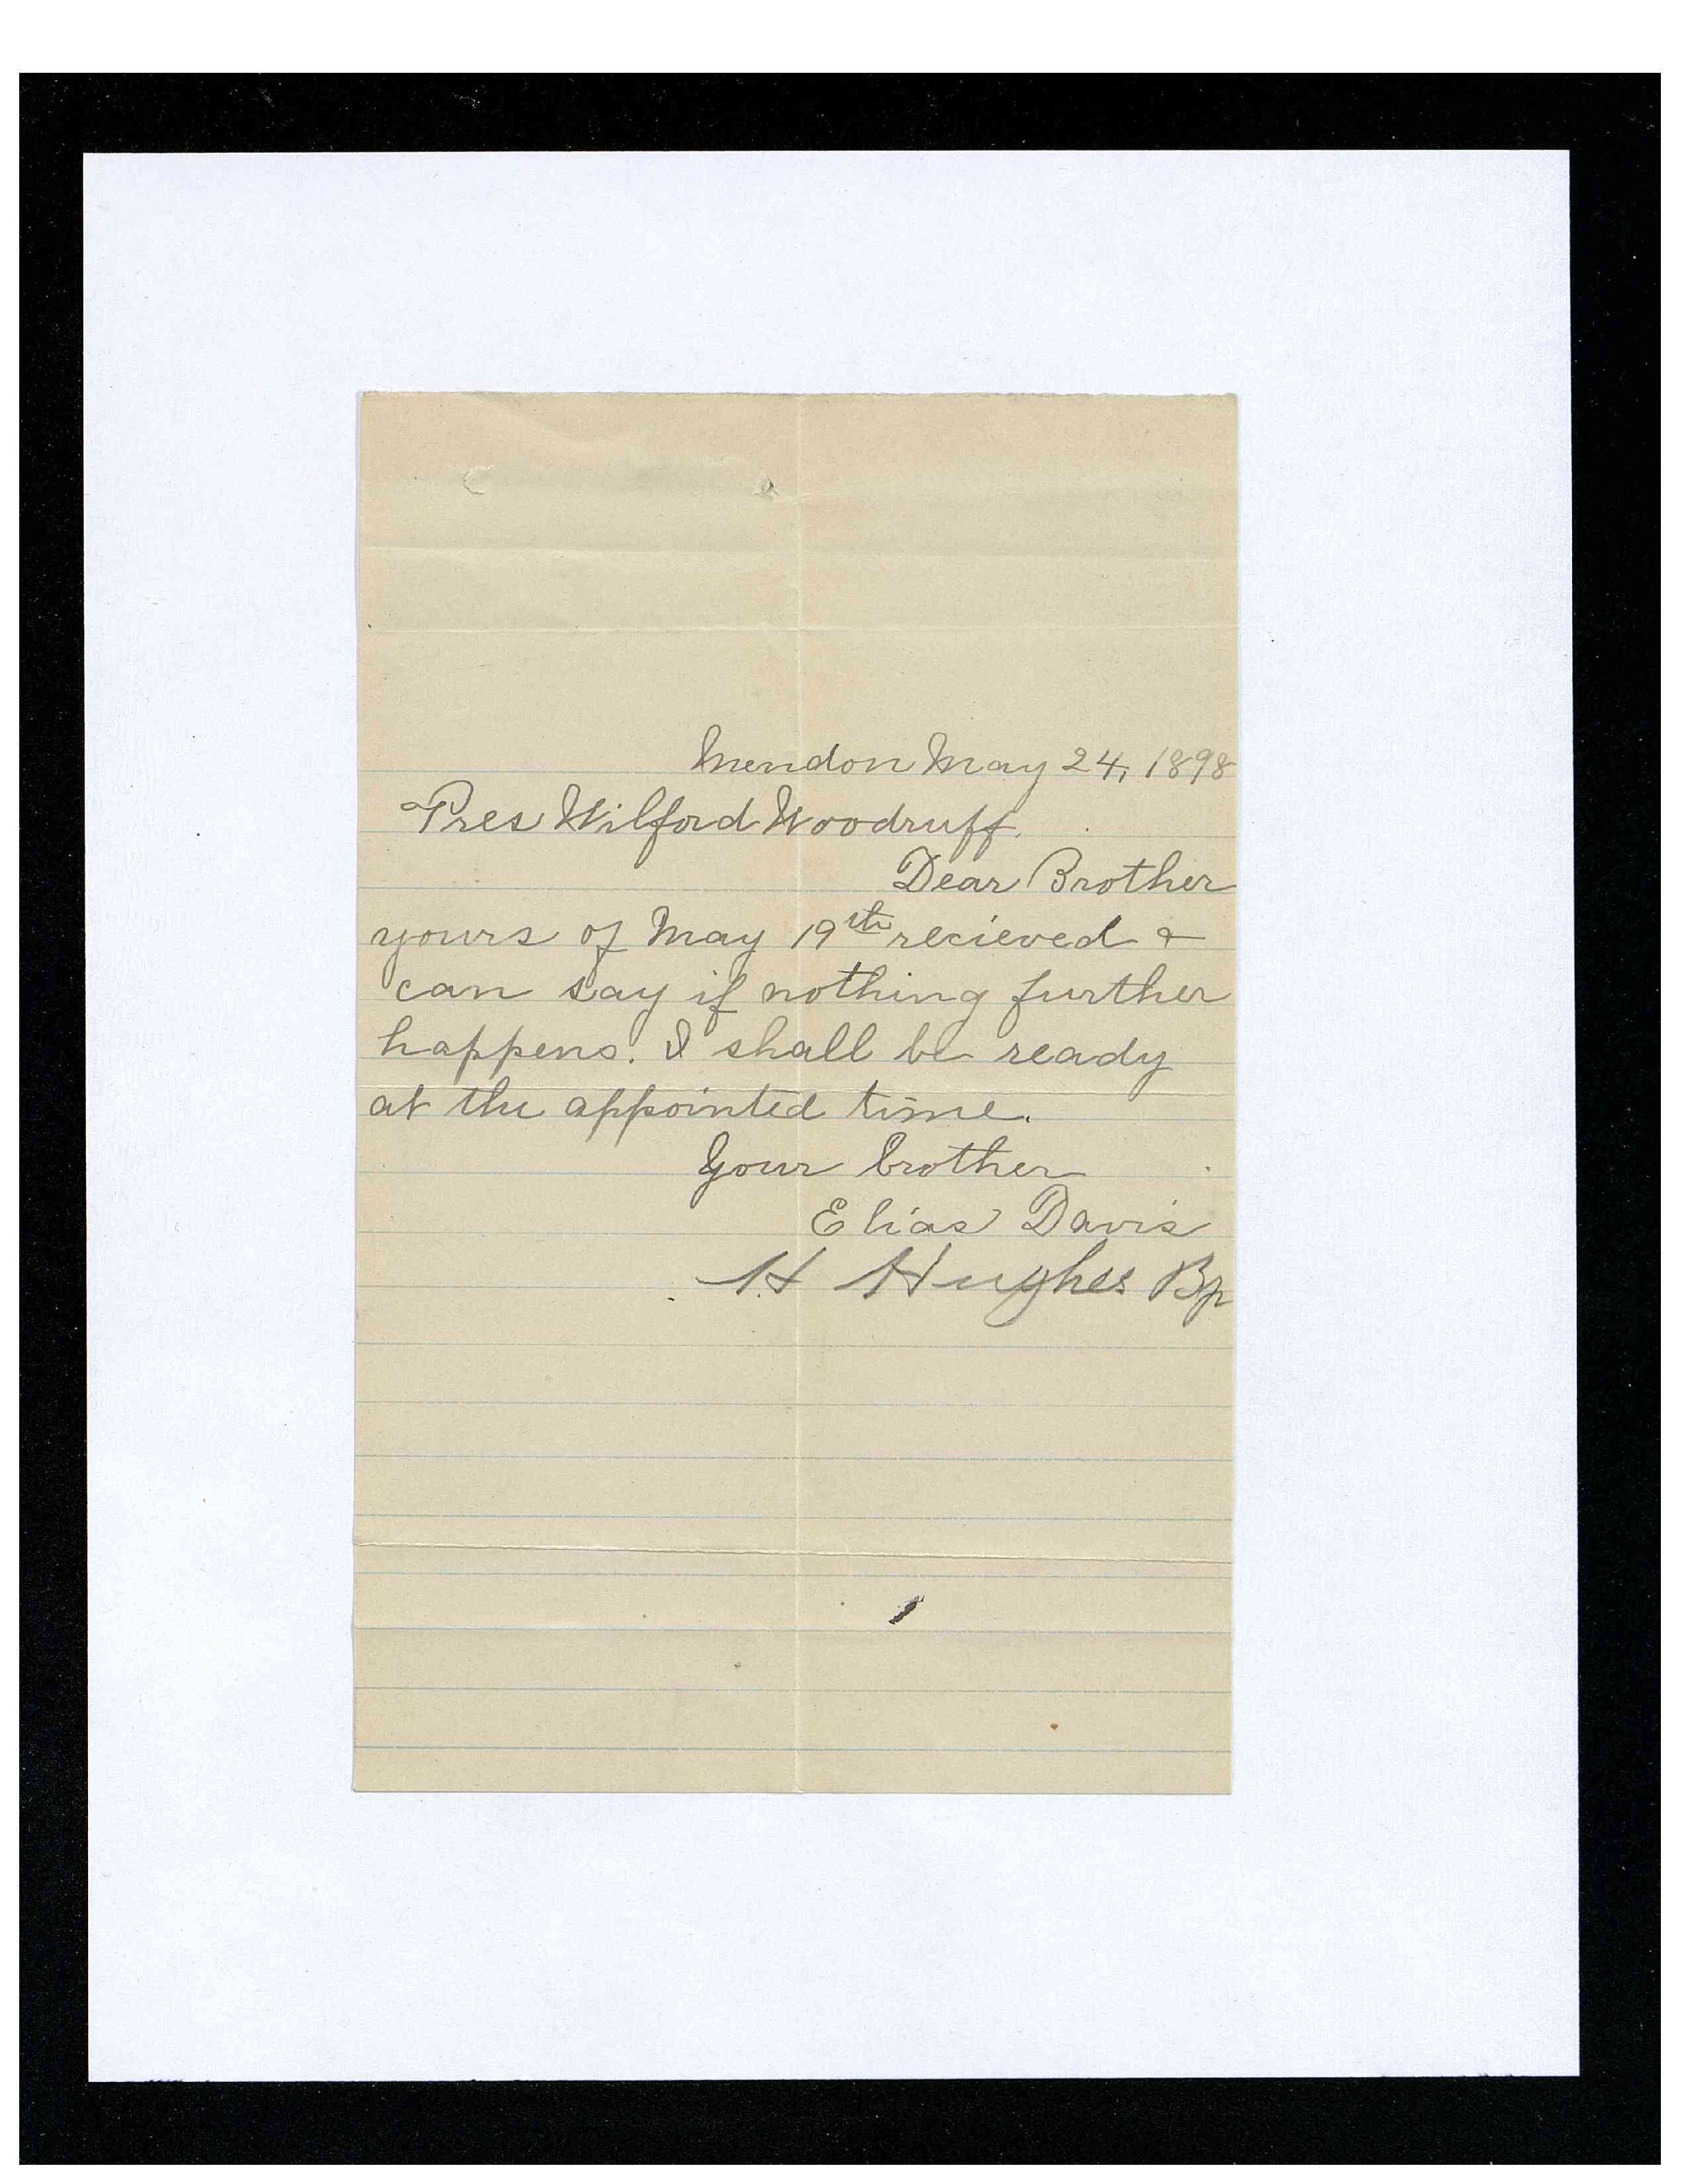 Mendon May 24, 1898
Pres Wilford Woodruff.
Dear Brother
yours of May 19th recieved &
can say if nothing further
happens. I shall be ready
at the appointed time.
Your brother
Elias Davis
H Hughes Bp